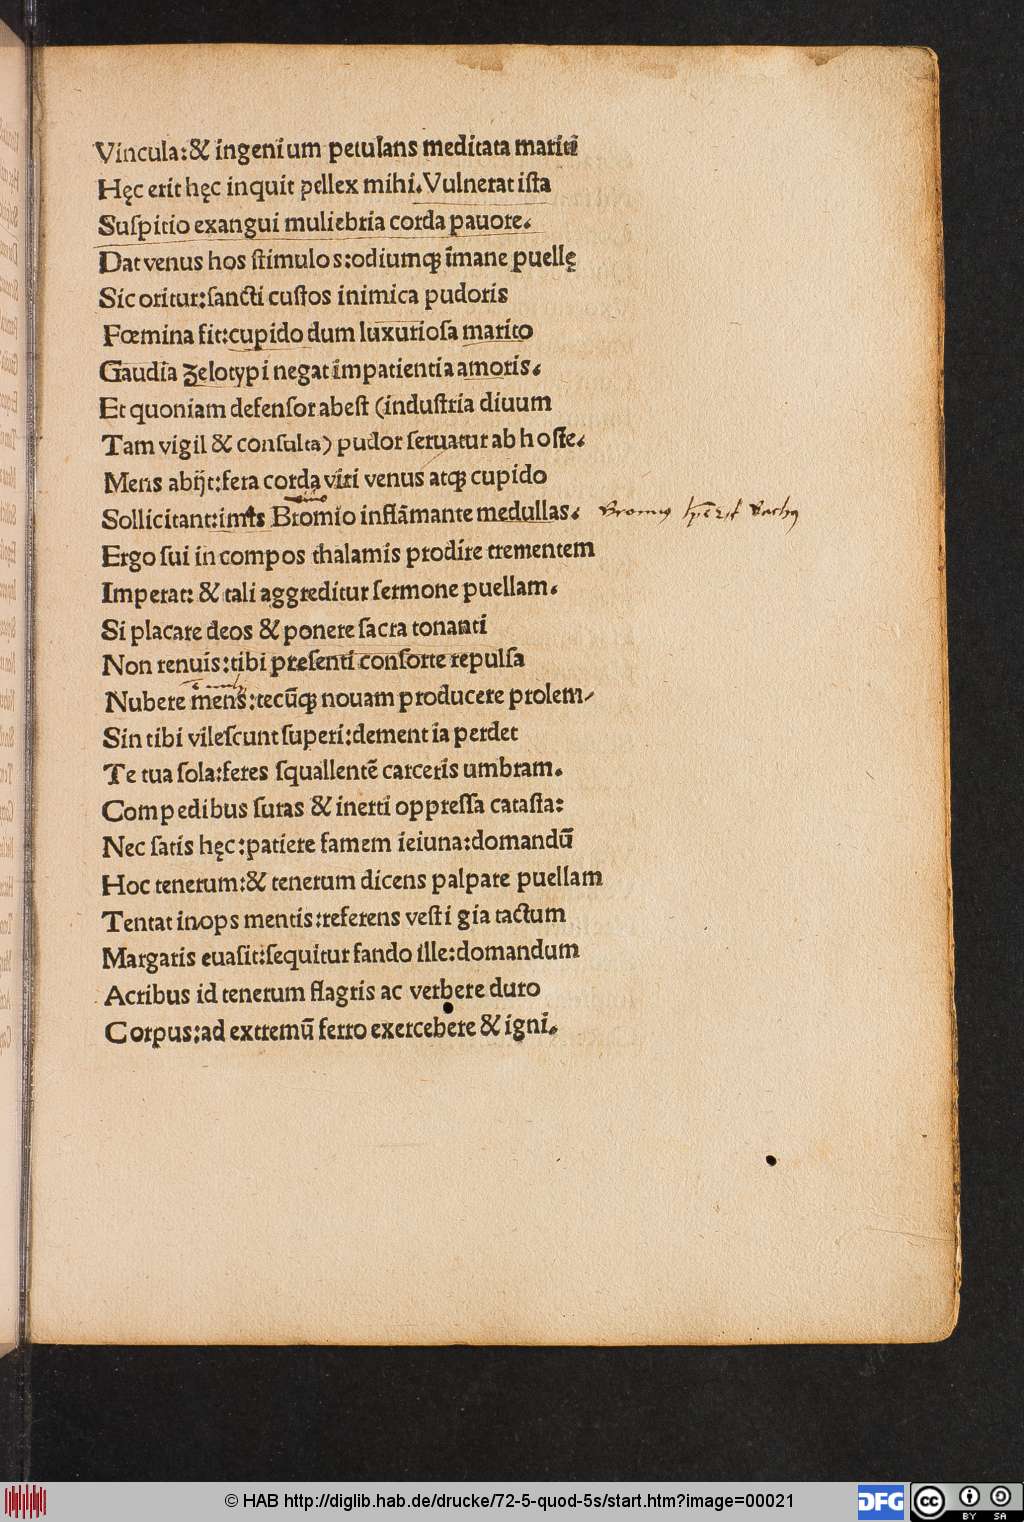 Vincula:& ingenium petulans meditata maritũ
Hęc erit hęc inquit pellex mihi.Vulnerat iſta
Suſpitio exangui muliebria corda pauore.
Dat venus hos ſtimulos:odiumqꝫ ĩmane puellę
Sic oritur:ſancti cuſtos inimica pudoris
Fœmina fit:cupido dum luxurioſa marito
Gaudia zelotypi negat impatientia amoris.
Et quoniam defenſor abeſt (induſtria diuum
Tam vigil & conſulta) pudor ſeruatur ab hoſte.
Mens abijt:fera corda viri venus atqꝫ cupido
Sollicitant:imis Bromio inflãmante medullas. Bromius Bachus
Ergo ſui incompos thalamis prodire trementem
Imperat: & tali aggreditur ſermone puellam.
Si placare deos & ponere ſacra tonanti
Non renuis:tibi preſenti conſorte repulſa
Nubere mens:tecũqꝫ nouam producere prolem/
Sin tibi vileſcunt ſuperi:dementia perdet
Te tua ſola:feres ſquallentẽ carceris umbram.
Compedibus ſuras & inerti oppreſſa cataſta:
Nec ſatis hęc:patiere famem ieiuna:domandũ
Hoc tenerum:& tenerum dicens palpare puellam
Tentat inops mentis:referens veſtigia tactum
Margaris euaſit:ſequitur fando ille:domandum
Acribus id tenerum flagris ac verbere duro
Corpus:ad extremũ ferro exercebere & igni.
© HAB http://diglib.hab.de/drucke/72-5-quod-5s/start.htm?image=00021
DFG
cc
BY SA